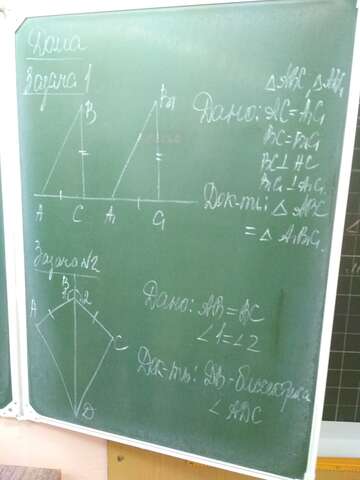 Дома
Задача 1
B
B₁
A
C
A₁
C₁
△ABC, △A₁B₁C₁
Дано: AC=A₁C₁
BC=B₁C₁
BC⊥AC
B₁C₁⊥A₁C₁
Док-ть: △ABC
=△A₁B₁C₁.
Задача №2
B
1
2
A
C
D
Дано: AB=BC
∠1=∠2
Док-ть: DB-биссектриса
∠ADC